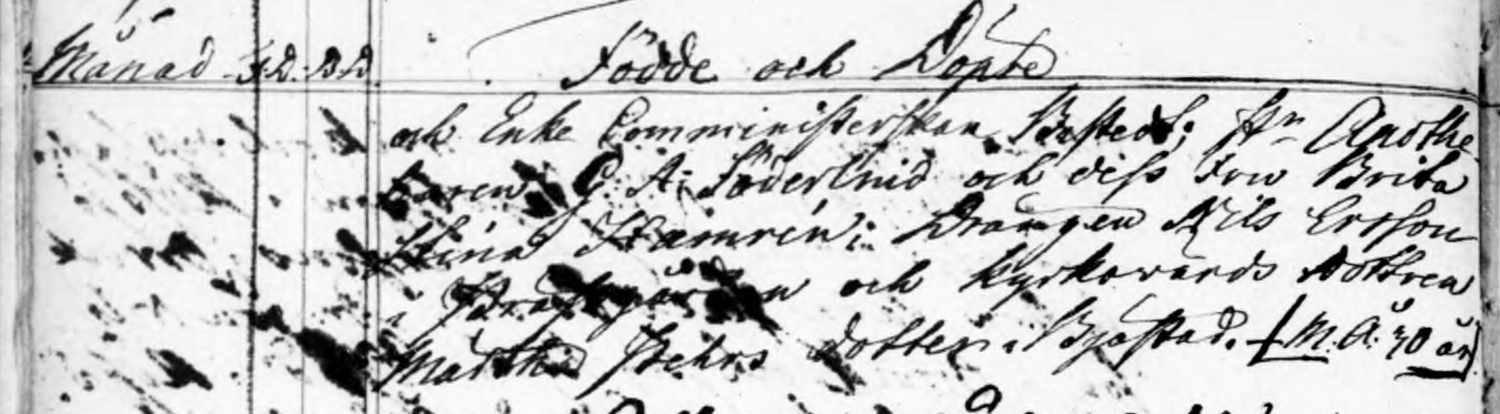 Månad F.D. B.D. Födde och Döpte
och Enke Comministerskan Bostedt; Hrn Apothe-
karen G: A: Söderlind och dess Fru Brita
Stina Hamrén; Drängen Nils Ersson
i Prästgården och Kyrkovärds dottren
Märtha Pehrs dotter i Bjästad. (M. Å: 30 år)